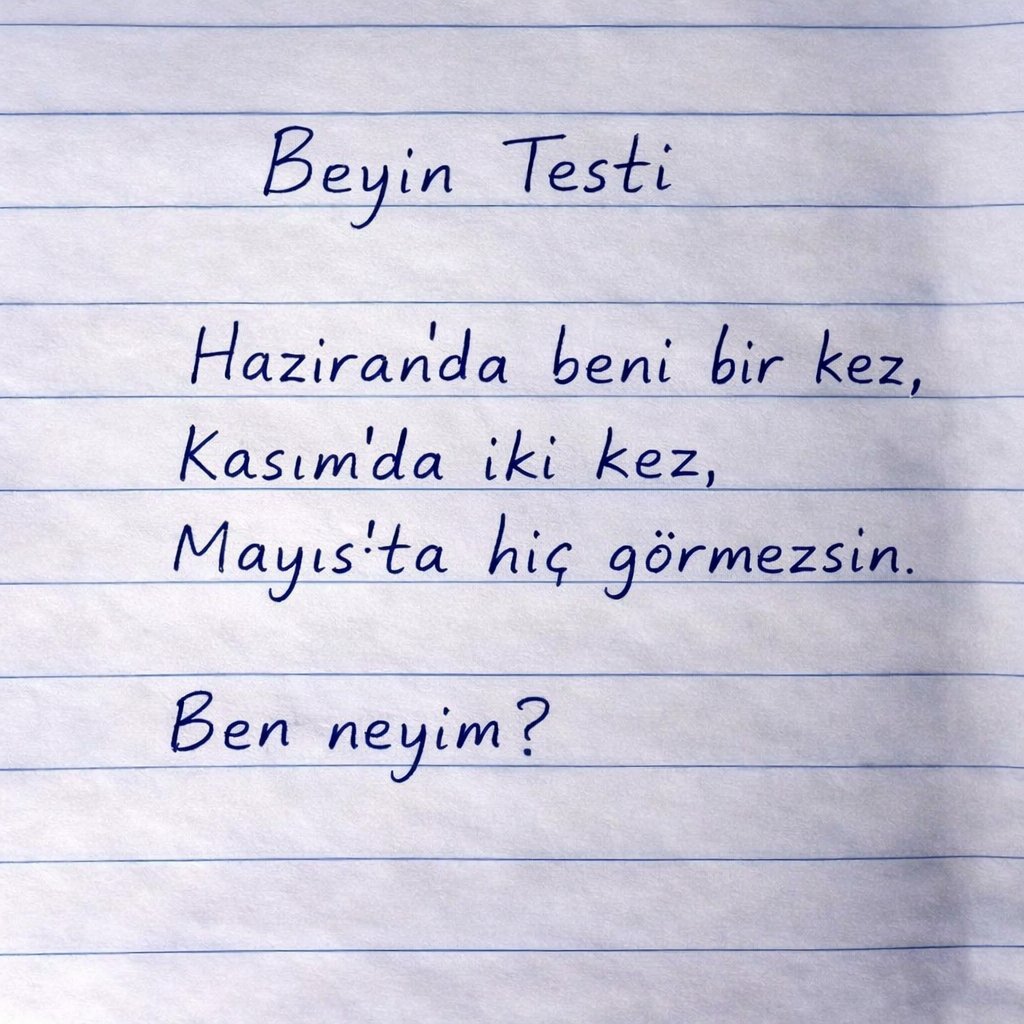 Beyin Testi
Haziran'da beni bir kez,
Kasım'da iki kez,
Mayıs'ta hiç görmezsin.
Ben neyim?